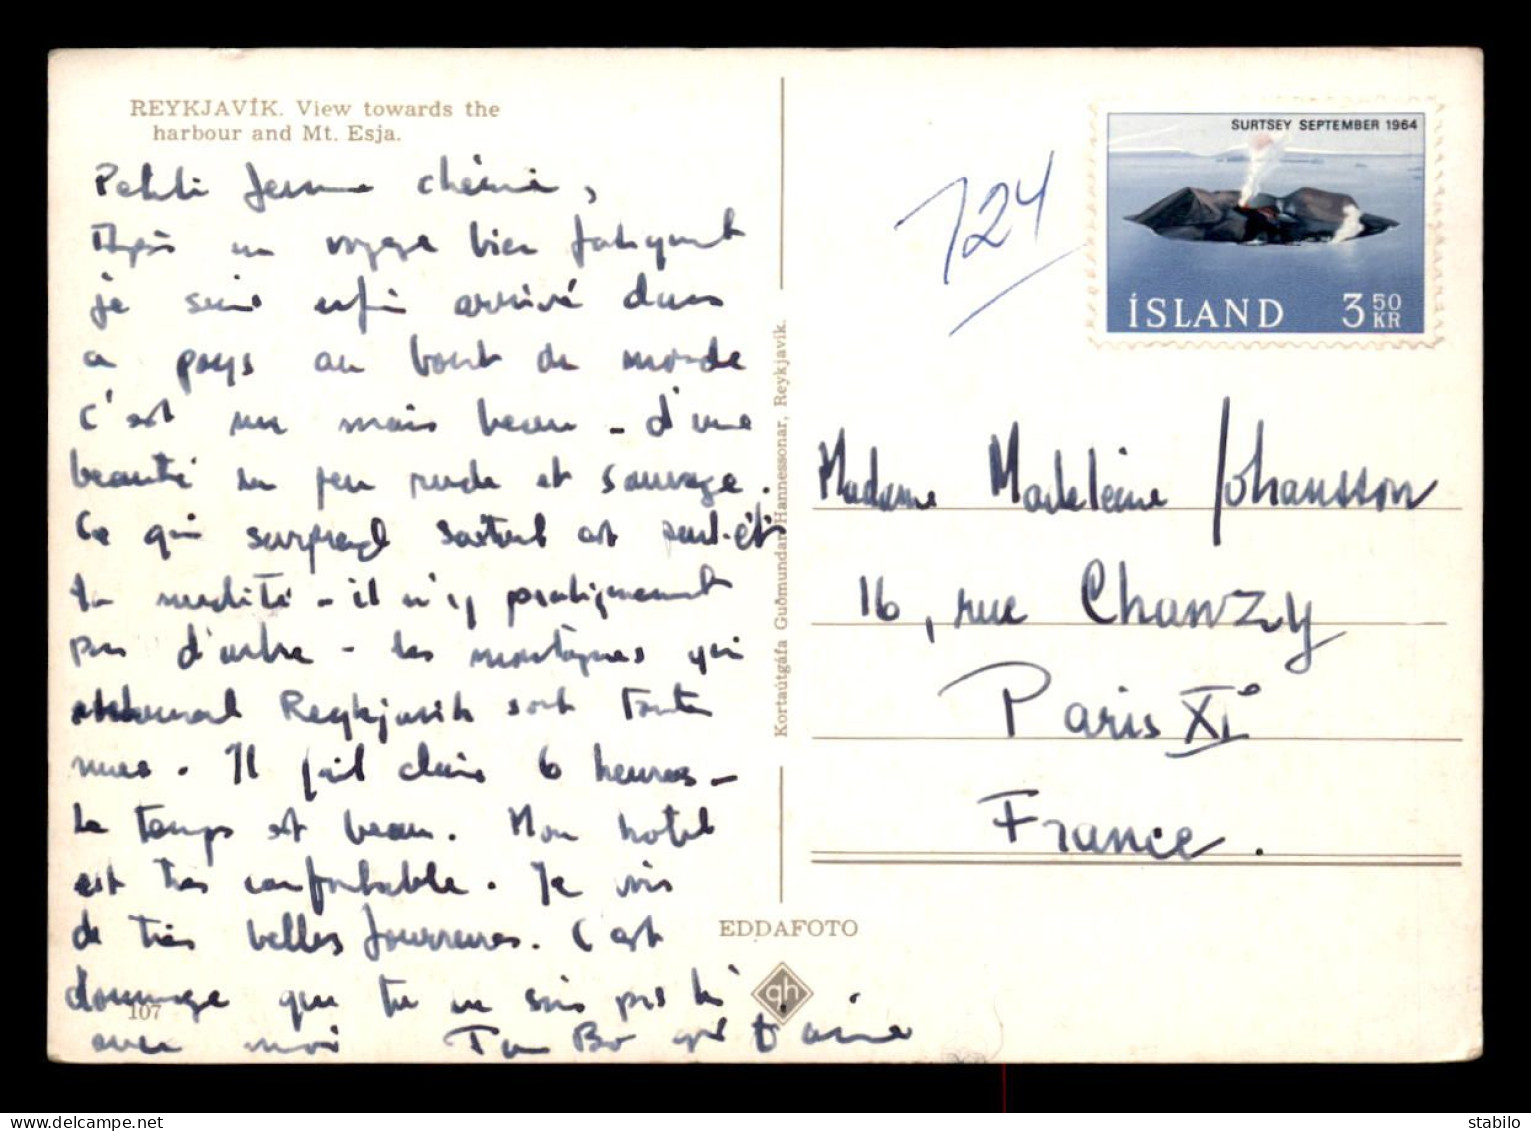 REYKJAVÍK. View towards the
harbour and Mt. Esja.
Petite femme chérie,
Après un voyage bien fatiguant
je suis enfin arrivé dans
un pays au bout du monde
C'est nu mais beau - d'une
beauté un peu rude et sauvage.
Ce qui surprend surtout est peut-êt
la nudité - il n'y pratiquement
pas d'arbre - les montagnes qui
entourent Reykjavik sont toutes
nues. Il fait clair 6 heures -
Le temps est beau. Mon hotel
est très confortable. Je vois
de très belles fourrures. C'est
dommage que tu ne sois pas là
avec moi Ton Bo qui t'aime
107
Kortaútgáfa Guðmundar Hannessonar, Reykjavík.
EDDAFOTO
gh
724
SURTSEY SEPTEMBER 1964
ÍSLAND 3 50 KR
Madame Madeleine Johansson
16, rue Chanzy
Paris XIe
France.
stabilo